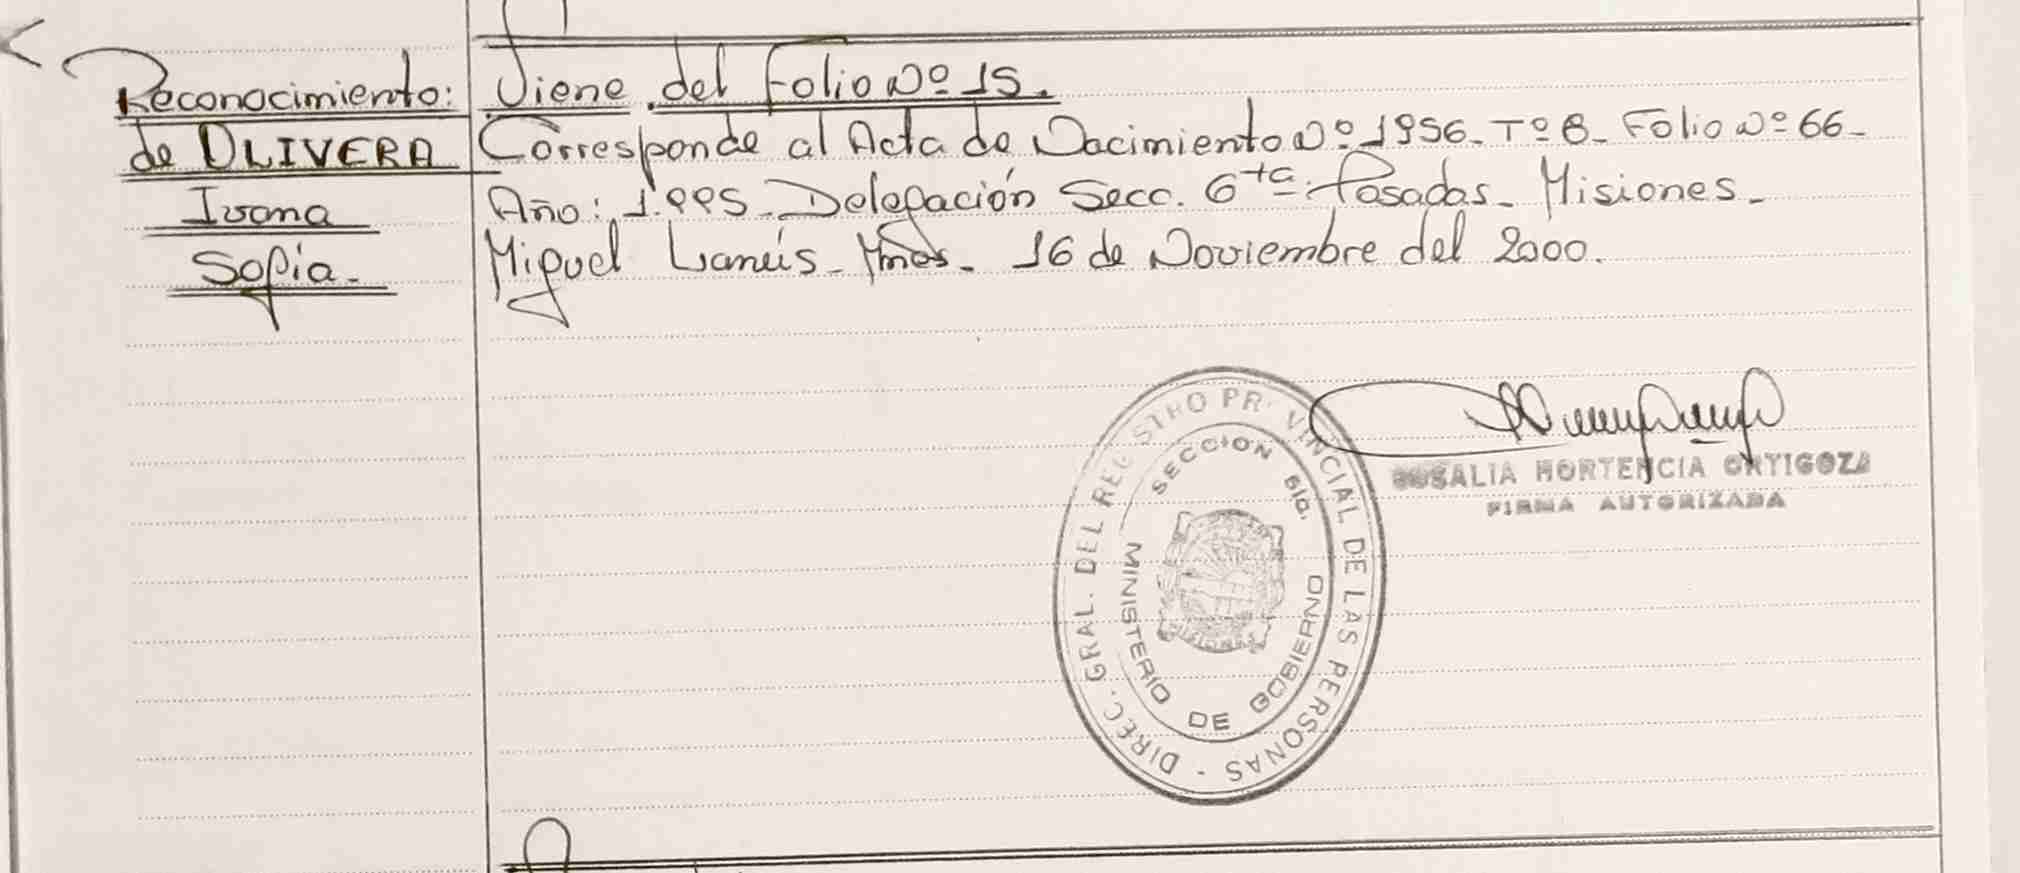 Reconocimiento:
de OLIVERA
Ivana
Sofía-
Viene del Folio Nº 15.
Corresponde al Acta de Nacimiento Nº 1956- Tº 8- Folio Nº 66-
Año: 1.995- Delegación Secc. 6ta. Posadas- Misiones-
Miguel Lanús- Mnes- 16 de Noviembre del 2000.
ROSALIA HORTENCIA ORTIGOZA
FIRMA AUTORIZADA
DIREC. GRAL. DEL REGISTRO PROVINCIAL DE LAS PERSONAS -
SECCION
MINISTERIO DE GOBIERNO
MISIONES